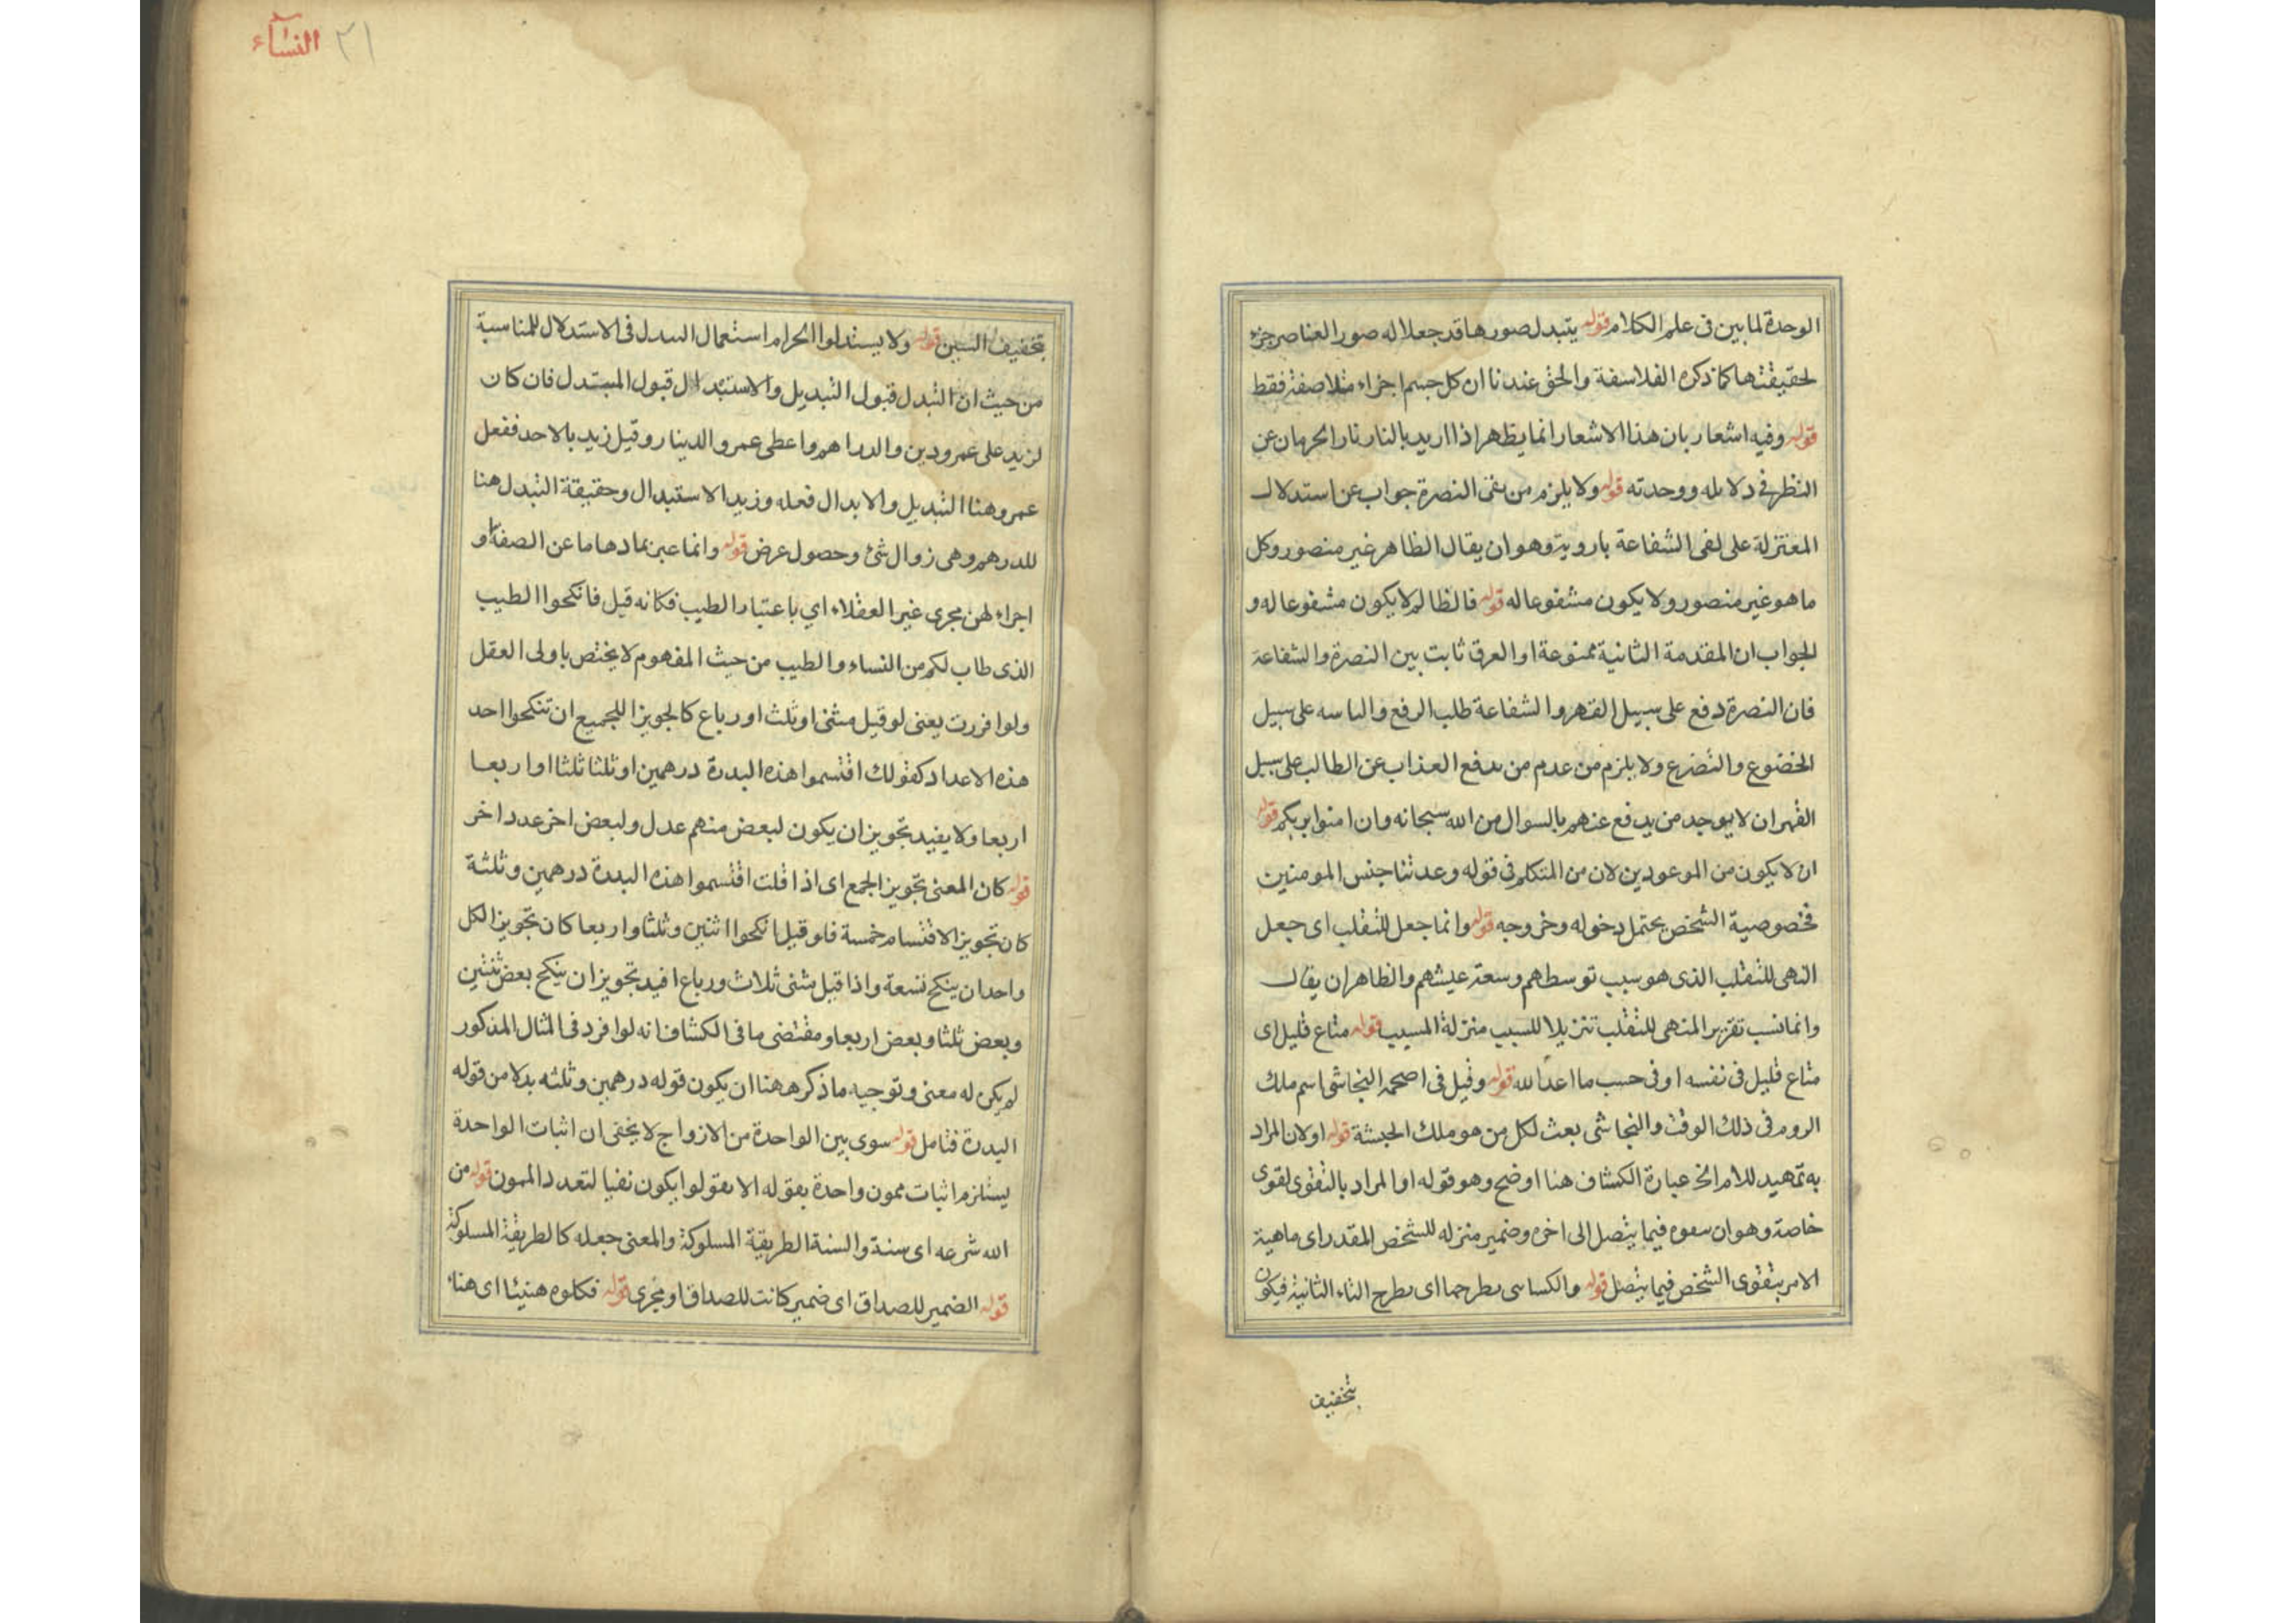 الوحدة لما بين فى علم الكلام قوله يتبدل صورها قد جعلا له صور العناصر جزء
لحقيقتها كما ذكره الفلاسفة والحق عندنا ان كل جسم اجزاء مثلاصفة فقط
قوله وفيه اشعار بان هذا الاشعار انما يظهر اذا اريد بالنار نار الحرمان عن
النظر فى دلايله ووحدته قوله ولا يلزم من نفى النصرة جواب عن استدلال
المعتزلة على لفى الشفاعة باروية وهو ان يقال الظاهر غير منصور وكل
ما هو غير منصور ولا يكون مشفوعا له قوله فالظالم لا يكون مشفوعا له و
الجواب ان المقدمة الثانية ممنوعة او العرق ثابت بين النصرة والشفاعة
فان النصرة دفع على سبيل القهر والشفاعة طلب الرفع والباسه على سبيل
الخضوع والتضرع ولا يلزم من عدم من يدفع العذاب عن الطالب على سبيل
القهر ان لا يوجد من يدفع عنهم بالسوال من الله سبحانه وان امنوا بربكم قوله
ان لا يكون من الموعودين لان من المتكلم فى قوله وعدتنا جنس المومنين
فخصوصية الشخص يحتمل دخوله وخروجه قوله وانما جعل للتقلب اى جعل
النهى للتقلب الذى هو سبب توسطهم وسعة عيشهم والظاهر ان يقال
وانما نسب تقرير المنهى للتقلب تنزيلا للسبب منزلة المسبب قوله متاع قليل اى
متاع قليل فى نفسه او فى حسب ما اعد الله قوله وقيل فى اصحمه النجاشى اسم ملك
الروم فى ذلك الوقت والنجاشى بعث لكل من هو ملك الحبشة قوله او لان المراد
به تمهيد للامر الخ عبارة الكشاف هنا اوضح وهو قوله او المراد بالتقوى لقوى
خاصة وهو ان سعوه فيما يتصل الى اخره وضمير منزله للشخص المقدر اى ماهية
الامر بتقوى الشخص فيما يتصل قوله والكساسى بطرحها اى بطرح التاء الثانية فيكون
بتخفيف
النساء ٢١
بتخفيف السين قوله ولا يستدلوا الحرام استعمال السدل فى الاستدلال للمناسبة
من حيث ان التبدل قبول التبديل والاستبدال قبول المبتدل فان كان
لزيد على عمرو دين والدراهم واعطى عمرو الدينار وقيل زيد بالاحد ففعل
عمرو هنا التبديل والابدال فعله وزيد الاستبدال وحقيقة التبدل هنا
للدرهم وهى زوال شئ وحصول عرض قوله وانما عبر بمادها ما عن الصفة او
اجراء لهن مجرى غير العقلاء اي باعتبار الطيب فكانه قيل فانكحوا الطيب
الذى طاب لكم من النساء والطيب من حيث المفهوم لا يختص باولى العقل
ولو افررت يعنى لو قيل مثنى او ثلث او رباع كالجويز اللجميع ان تنكحوا احد
هذه الاعداد كقولك اقتسموا هذه البدرة درهمين او ثلثا ثلثا او اربعا
اربعا ولا يفيد تجويز ان يكون لبعض منهم عدل ولبعض اخر عدد اخر
قوله كان المعنى تجويز الجمع اى اذا قلت اقتسموا هذه البدرة درهمين وثلثة
كان تجويز الاقتسام خمسة فلو قيل انكحوا اثنين وثلثا واربعا كان تجويز الكل
واحد ان ينكح تسعة واذا قيل مثنى ثلاث ورباع افيد تجويز ان ينكح بعض ثنتين
وبعض ثلثا وبعض اربعا ومقتضى ما فى الكشاف انه لو افرد فى المثال المذكور
لم يكن له معنى وتوجيه ما ذكره هنا ان يكون قوله درهمين وثلثه بدلا من قوله
البدرة فتامل قوله سوى بين الواحدة من الازواج لا يخفى ان اثبات الواحدة
يستلزم اثبات ممون واحدة بقوله الا يعولوا يكون نفيا لتعدد الممون قوله من
الله شرعه اى سنة والسنة الطريقة المسلوكة والمعنى جعله كالطريقة المسلوكة
قوله الضمير للصداق اى ضمير كانت للصداق او مجرى قوله فكلوه هنيئا اى هناء